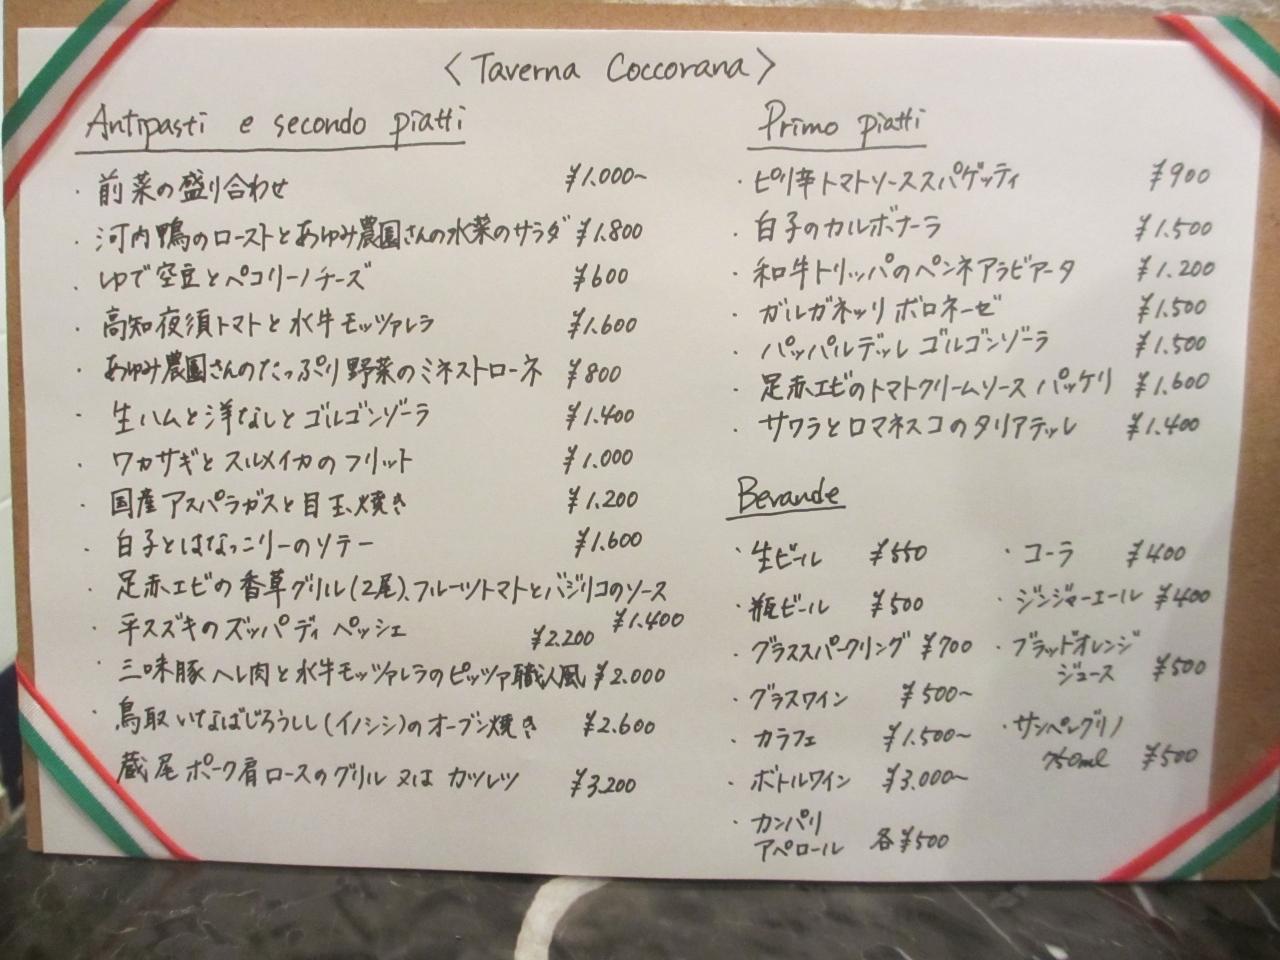 〈Taverna Coccorana〉
Antipasti e secondo piatti
・前菜の盛り合わせ ¥1.000~
・河内鴨のローストとあゆみ農園さんの水菜のサラダ ¥1.800
・ゆで空豆とペコリーノチーズ ¥600
・高知夜須トマトと水牛モッツァレラ ¥1.600
・あゆみ農園さんのたっぷり野菜のミネストローネ ¥800
・生ハムと洋なしとゴルゴンゾーラ ¥1.400
・ワカサギとスルメイカのフリット ¥1.000
・国産アスパラガスと目玉焼き ¥1.200
・白子とはなっこりーのソテー ¥1.600
・足赤エビの香草グリル(2尾)、フルーツトマトとバジリコのソース
¥1.400
・平スズキのズッパ ディ ペッシェ ¥2.200
・三味豚ヘレ肉と水牛モッツァレラのピッツァ職人風 ¥2.000
・鳥取いなばじろうしし(イノシシ)のオーブン焼き ¥2.600
・蔵尾ポーク肩ロースのグリル 又は カツレツ ¥3.200
Primo piatti
・ピリ辛トマトソーススパゲッティ ¥900
・白子のカルボナーラ ¥1.500
・和牛トリッパのペンネアラビアータ ¥1.200
・ガルガネッリ ボロネーゼ ¥1.500
・パッパルデッレ ゴルゴンゾーラ ¥1.500
・足赤エビのトマトクリームソース パッケリ ¥1.600
・サワラとロマネスコのタリアテッレ ¥1.400
Bevande
・生ビール ¥550
・瓶ビール ¥500
・グラススパークリング ¥700
・グラスワイン ¥500~
・カラフェ ¥1.500~
・ボトルワイン ¥3.000~
・カンパリ
アペロール 各¥500
・コーラ ¥400
・ジンジャーエール ¥400
・ブラッドオレンジ
ジュース ¥500
・サンペレグリノ
750ml ¥500